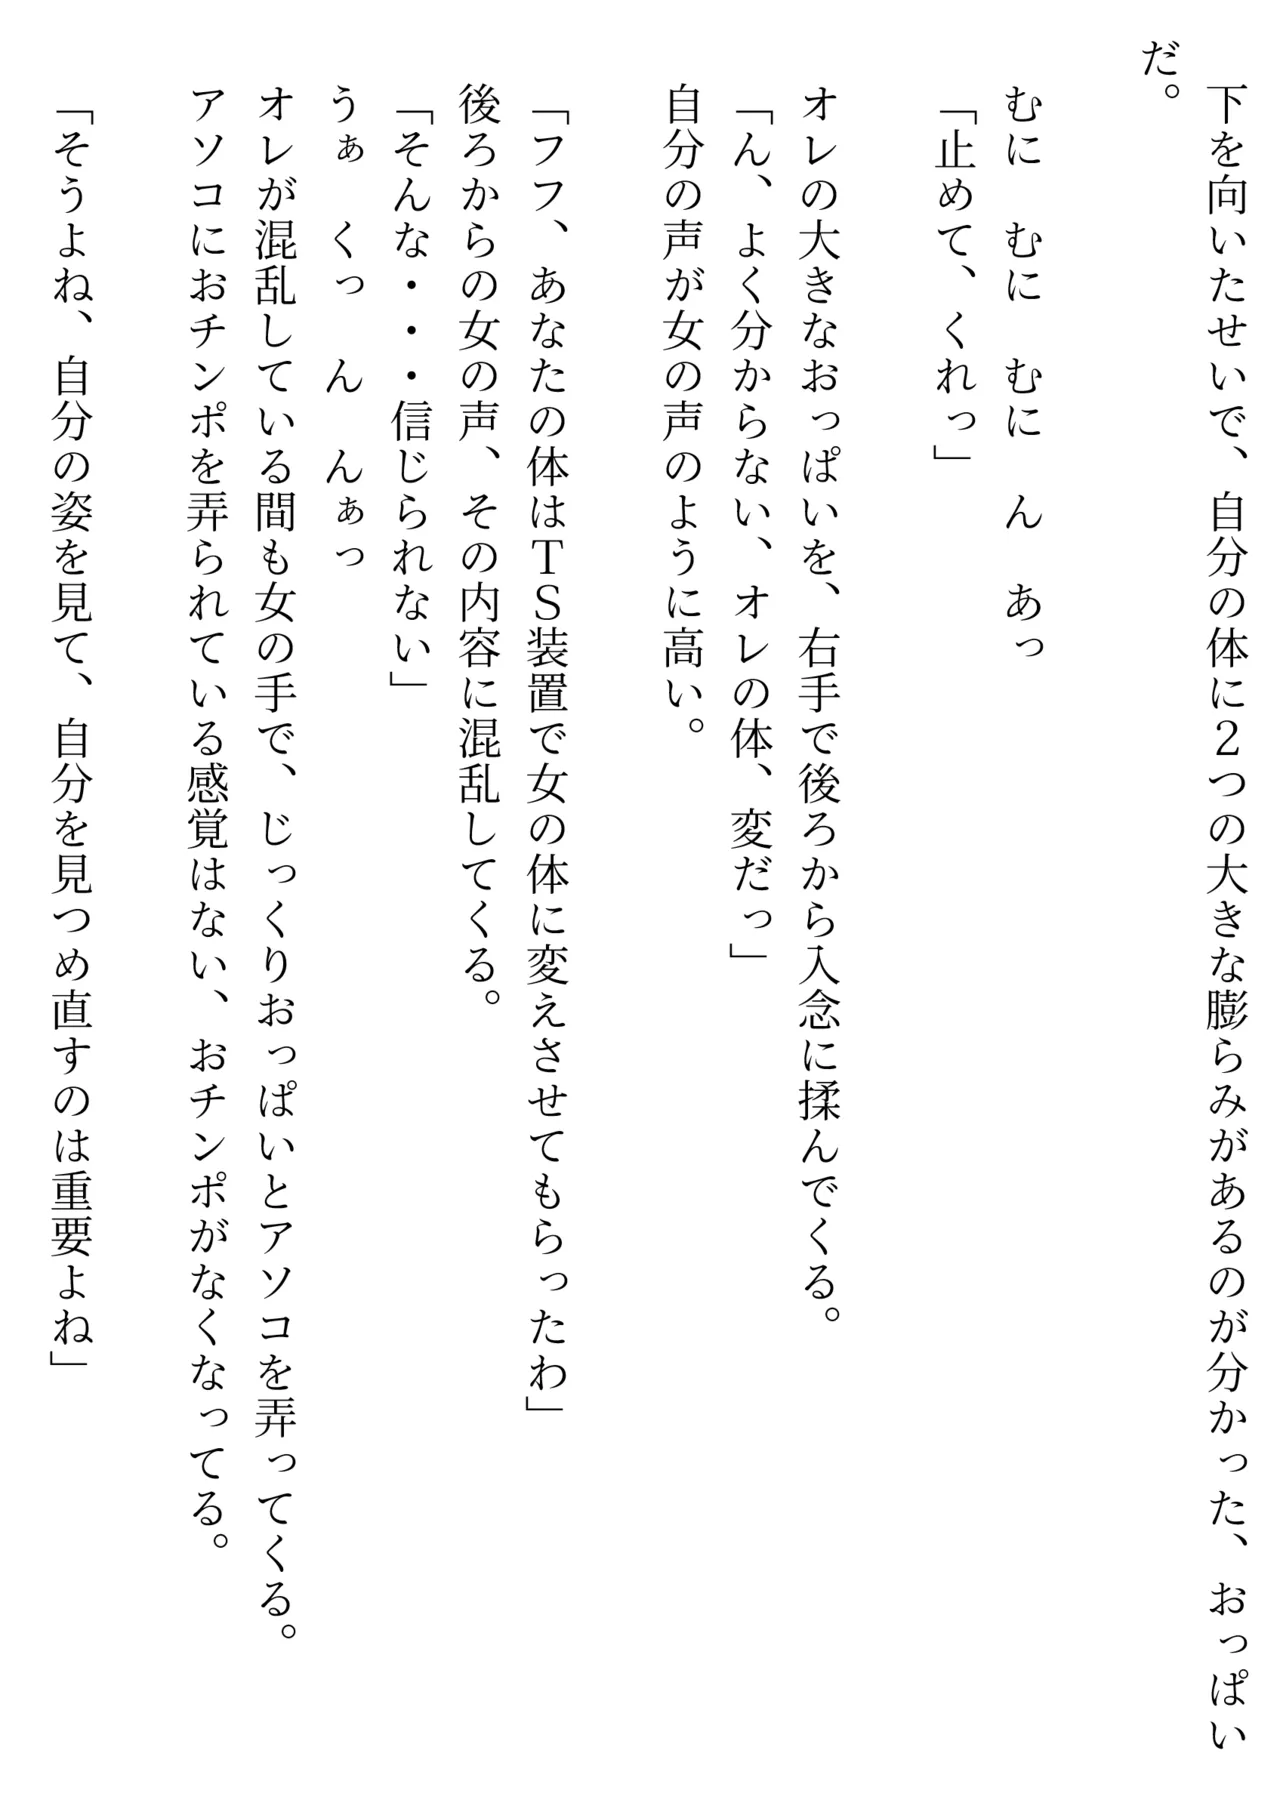 下を向いたせいで、自分の体に２つの大きな膨らみがあるのが分かった、おっぱい
だ。
むに　むに　むに　ん　あっ
「止めて、くれっ」
オレの大きなおっぱいを、右手で後ろから入念に揉んでくる。
「ん、よく分からない、オレの体、変だっ」
自分の声が女の声のように高い。
「フフ、あなたの体はＴＳ装置で女の体に変えさせてもらったわ」
後ろからの女の声、その内容に混乱してくる。
「そんな・・・信じられない」
うぁ　くっ　ん　んぁっ
オレが混乱している間も女の手で、じっくりおっぱいとアソコを弄ってくる。
アソコにおチンポを弄られている感覚はない、おチンポがなくなってる。
「そうよね、自分の姿を見て、自分を見つめ直すのは重要よね」